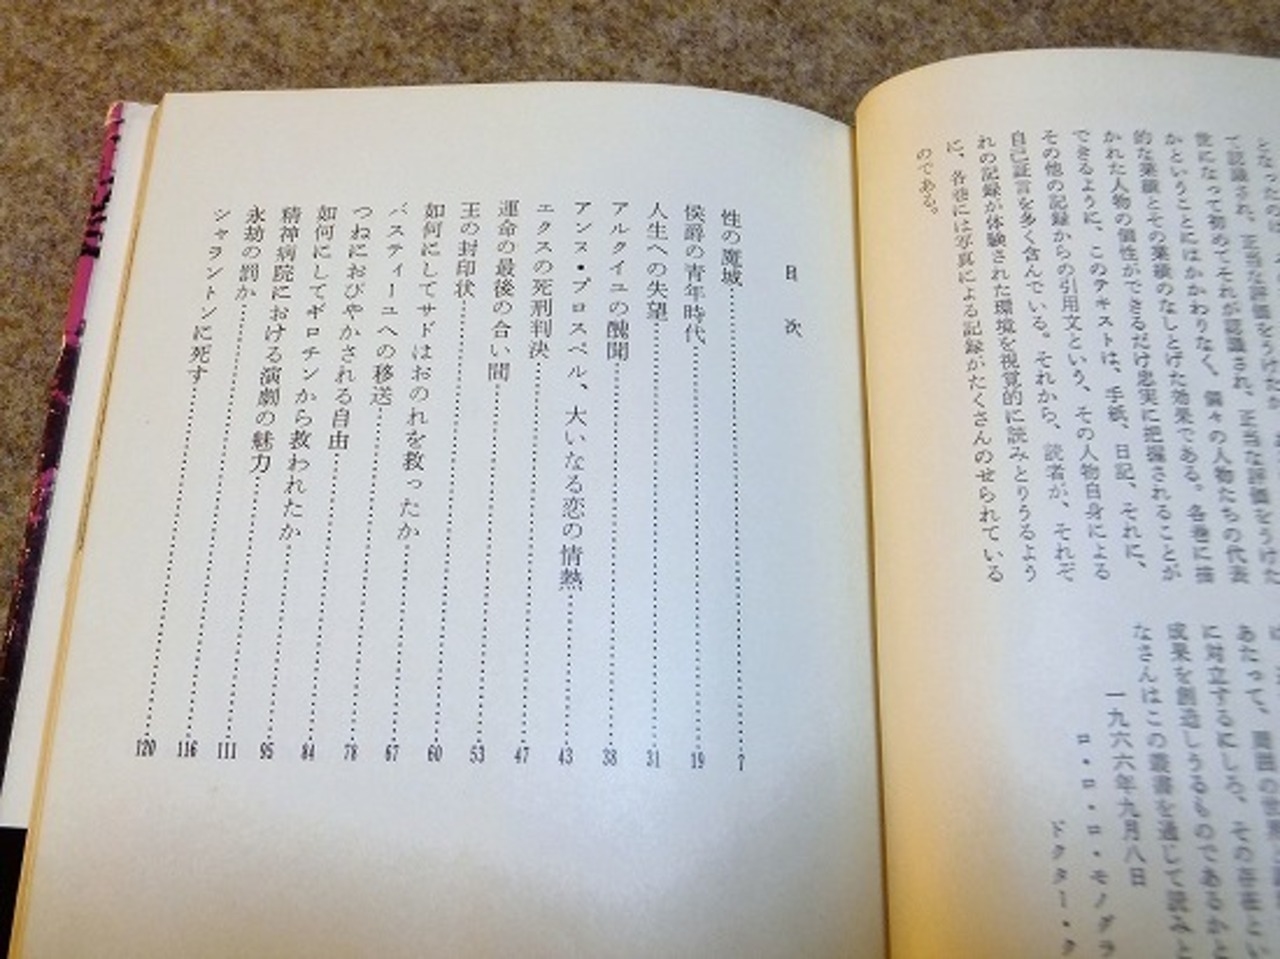 となったのは
て認識され、正当な評価をうけたか
世になって初めてそれが認識され、正当な評価をうけた
かということにはかかわりなく、個々の人物たちの代表
的な業績とその業績のなしとげた効果である。各巻に描
かれた人物の個性ができるだけ忠実に把握されることが
できるように、このテキストは、手紙、日記、それに、
その他の記録からの引用文という、その人物自身による
自己証言を多く含んでいる。それから、読者が、それぞ
れの記録が体験された環境を視覚的に読みとりうるよう
に、各巻には写真による記録がたくさんのせられている
のである。
あたって、周囲の世界
に対立するにしろ、その存在とい
成果を創造しうるものであるかと
なさんはこの叢書を通して読みと
一九六六年九月八日
ロ・ロ・ロ・モノグラ
ドクター・ク
目次
性の魔城 7
侯爵の青年時代 19
人生への失望 31
アルクイユの醜聞 38
アンヌ・プロスペル、大いなる恋の情熱 43
エクスの死刑判決 47
運命の最後の合い間 53
王の封印状 60
如何にしてサドはおのれを救ったか 67
バスティーユへの移送 78
つねにおびやかされる自由 84
如何にしてギロチンから救われたか 95
精神病院における演劇の魅力 111
永劫の罰か 116
シャラントンに死す 120